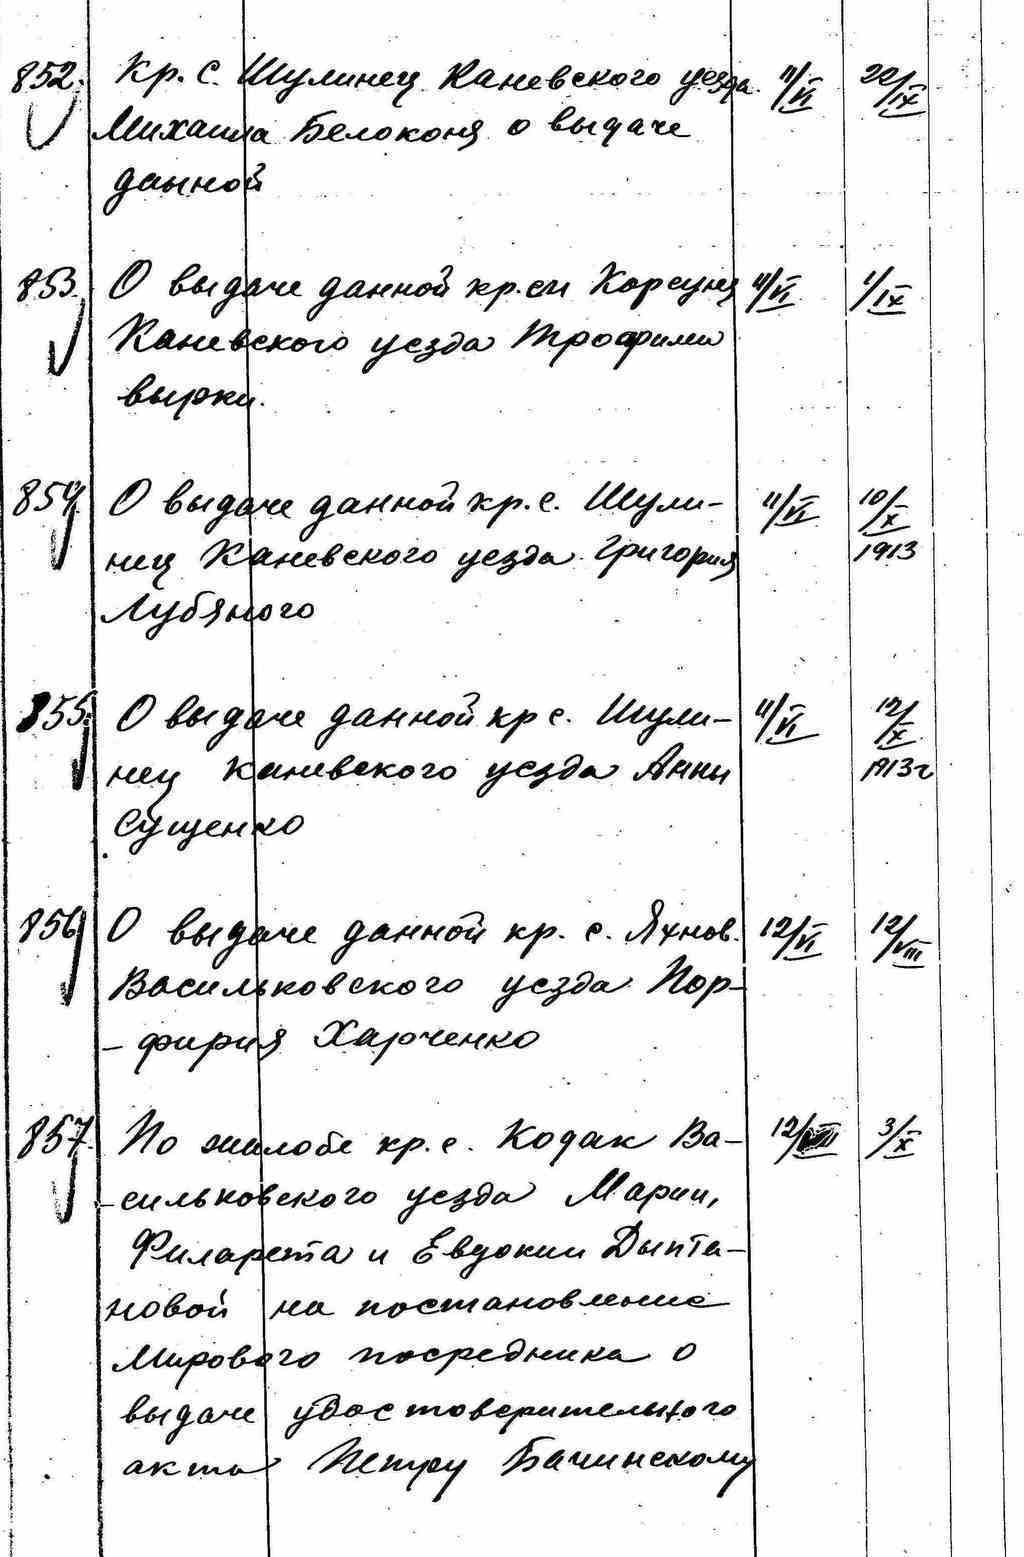 852. Кр. с. Шулинец Каневского уезда 11/VI 22/IX
Михаила Белоконя о выдаче
данной
853. О выдаче данной кр. см Корсунец 11/VI 1/IX
Каневского уезда Трофими
вырки.
854. О выдаче данной кр. с. Шули- 11/VI 10/X
нец Каневского уезда Григория 1913
Лубяного
855. О выдаче данной кр с. Шули- 11/VI 12/X
нец Каневского уезда Анны 1913г
Сущенко
856 О выдаче данной кр. с. Яхнов. 12/VI 12/VIII
Васильковского уезда Пор-
-фирия Харченко
857. По жалобе кр. с. Кодак Ва- 12/VIII 3/X
-сильковского уезда Марии,
Филарета и Евдокии Дыпта-
новой на постановление
Мирового посредника о
выдаче удостоверительного
акта Петру Бачинскому